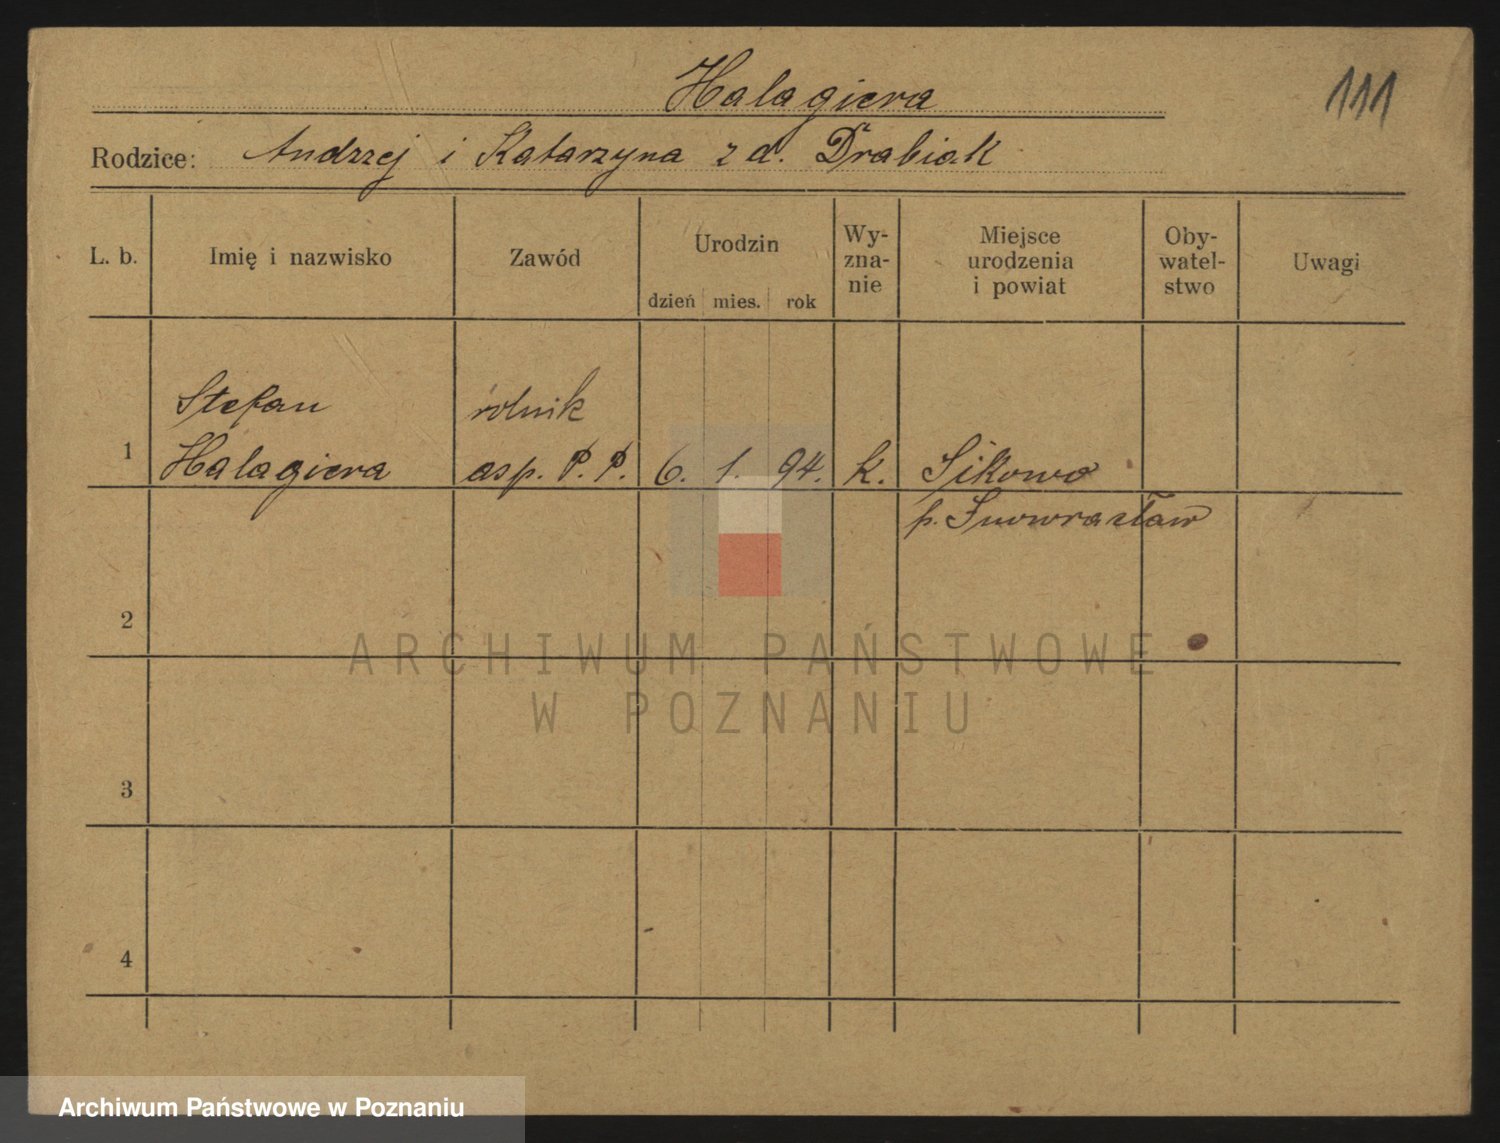 Halagiera
111
Rodzice: Andrzej i Katarzyna z d. Drabiak
L. b.
Imię i nazwisko
Zawód
Urodzin
dzień mies. rok
Wy-
zna-
nie
Miejsce
urodzenia
i powiat
Oby-
watel-
stwo
Uwagi
Stefan rolnik
1 Halagiera asp. P. P. 6. 1. 94. k. Sikowo
p. Inowrazław
2
3
4
ARCHIWUM PAŃSTWOWE
W POZNANIU
Archiwum Państwowe w Poznaniu